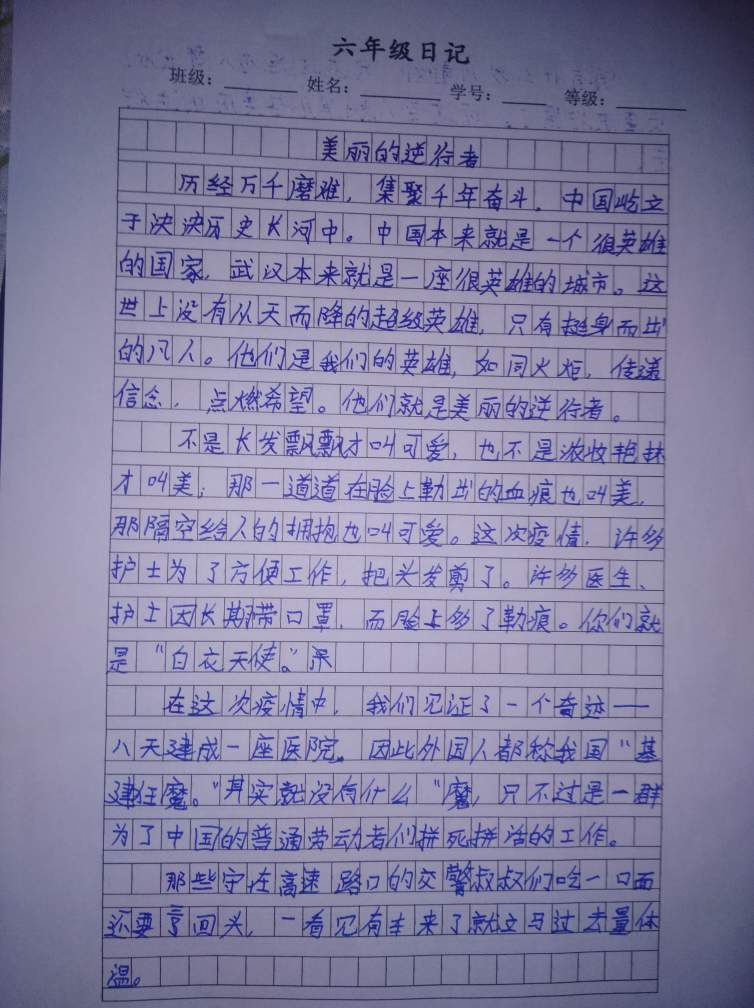 六年级日记
班级： 姓名： 学号： 等级：
美丽的逆行者
历经万千磨难，集聚千年奋斗，中国屹立
于泱泱历史长河中。中国本来就是一个很英雄
的国家，武汉本来就是一座很英雄的城市。这
世上没有从天而降的超级英雄，只有挺身而出
的凡人。他们是我们的英雄，如同火炬，传递
信念，点燃希望。他们就是美丽的逆行者。
不是长发飘飘才叫可爱，也不是浓妆艳抹
才叫美；那一道道在脸上勒出的血痕也叫美，
那隔空给人的拥抱也叫可爱。这次疫情，许多
护士为了方便工作，把头发剪了。许多医生、
护士因长期带口罩，而脸上多了勒痕。你们就
是“白衣天使”。
在这次疫情中，我们见证了一个奇迹——
八天建成一座医院。因此外国人都称我国“基
建狂魔。”其实就没有什么“魔，只不过是一群
为了中国的普通劳动者们拼死拼活的工作。
那些守在高速路口的交警叔叔们吃一口面
还要 回头，一看见有车来了就立马过去量体
温。